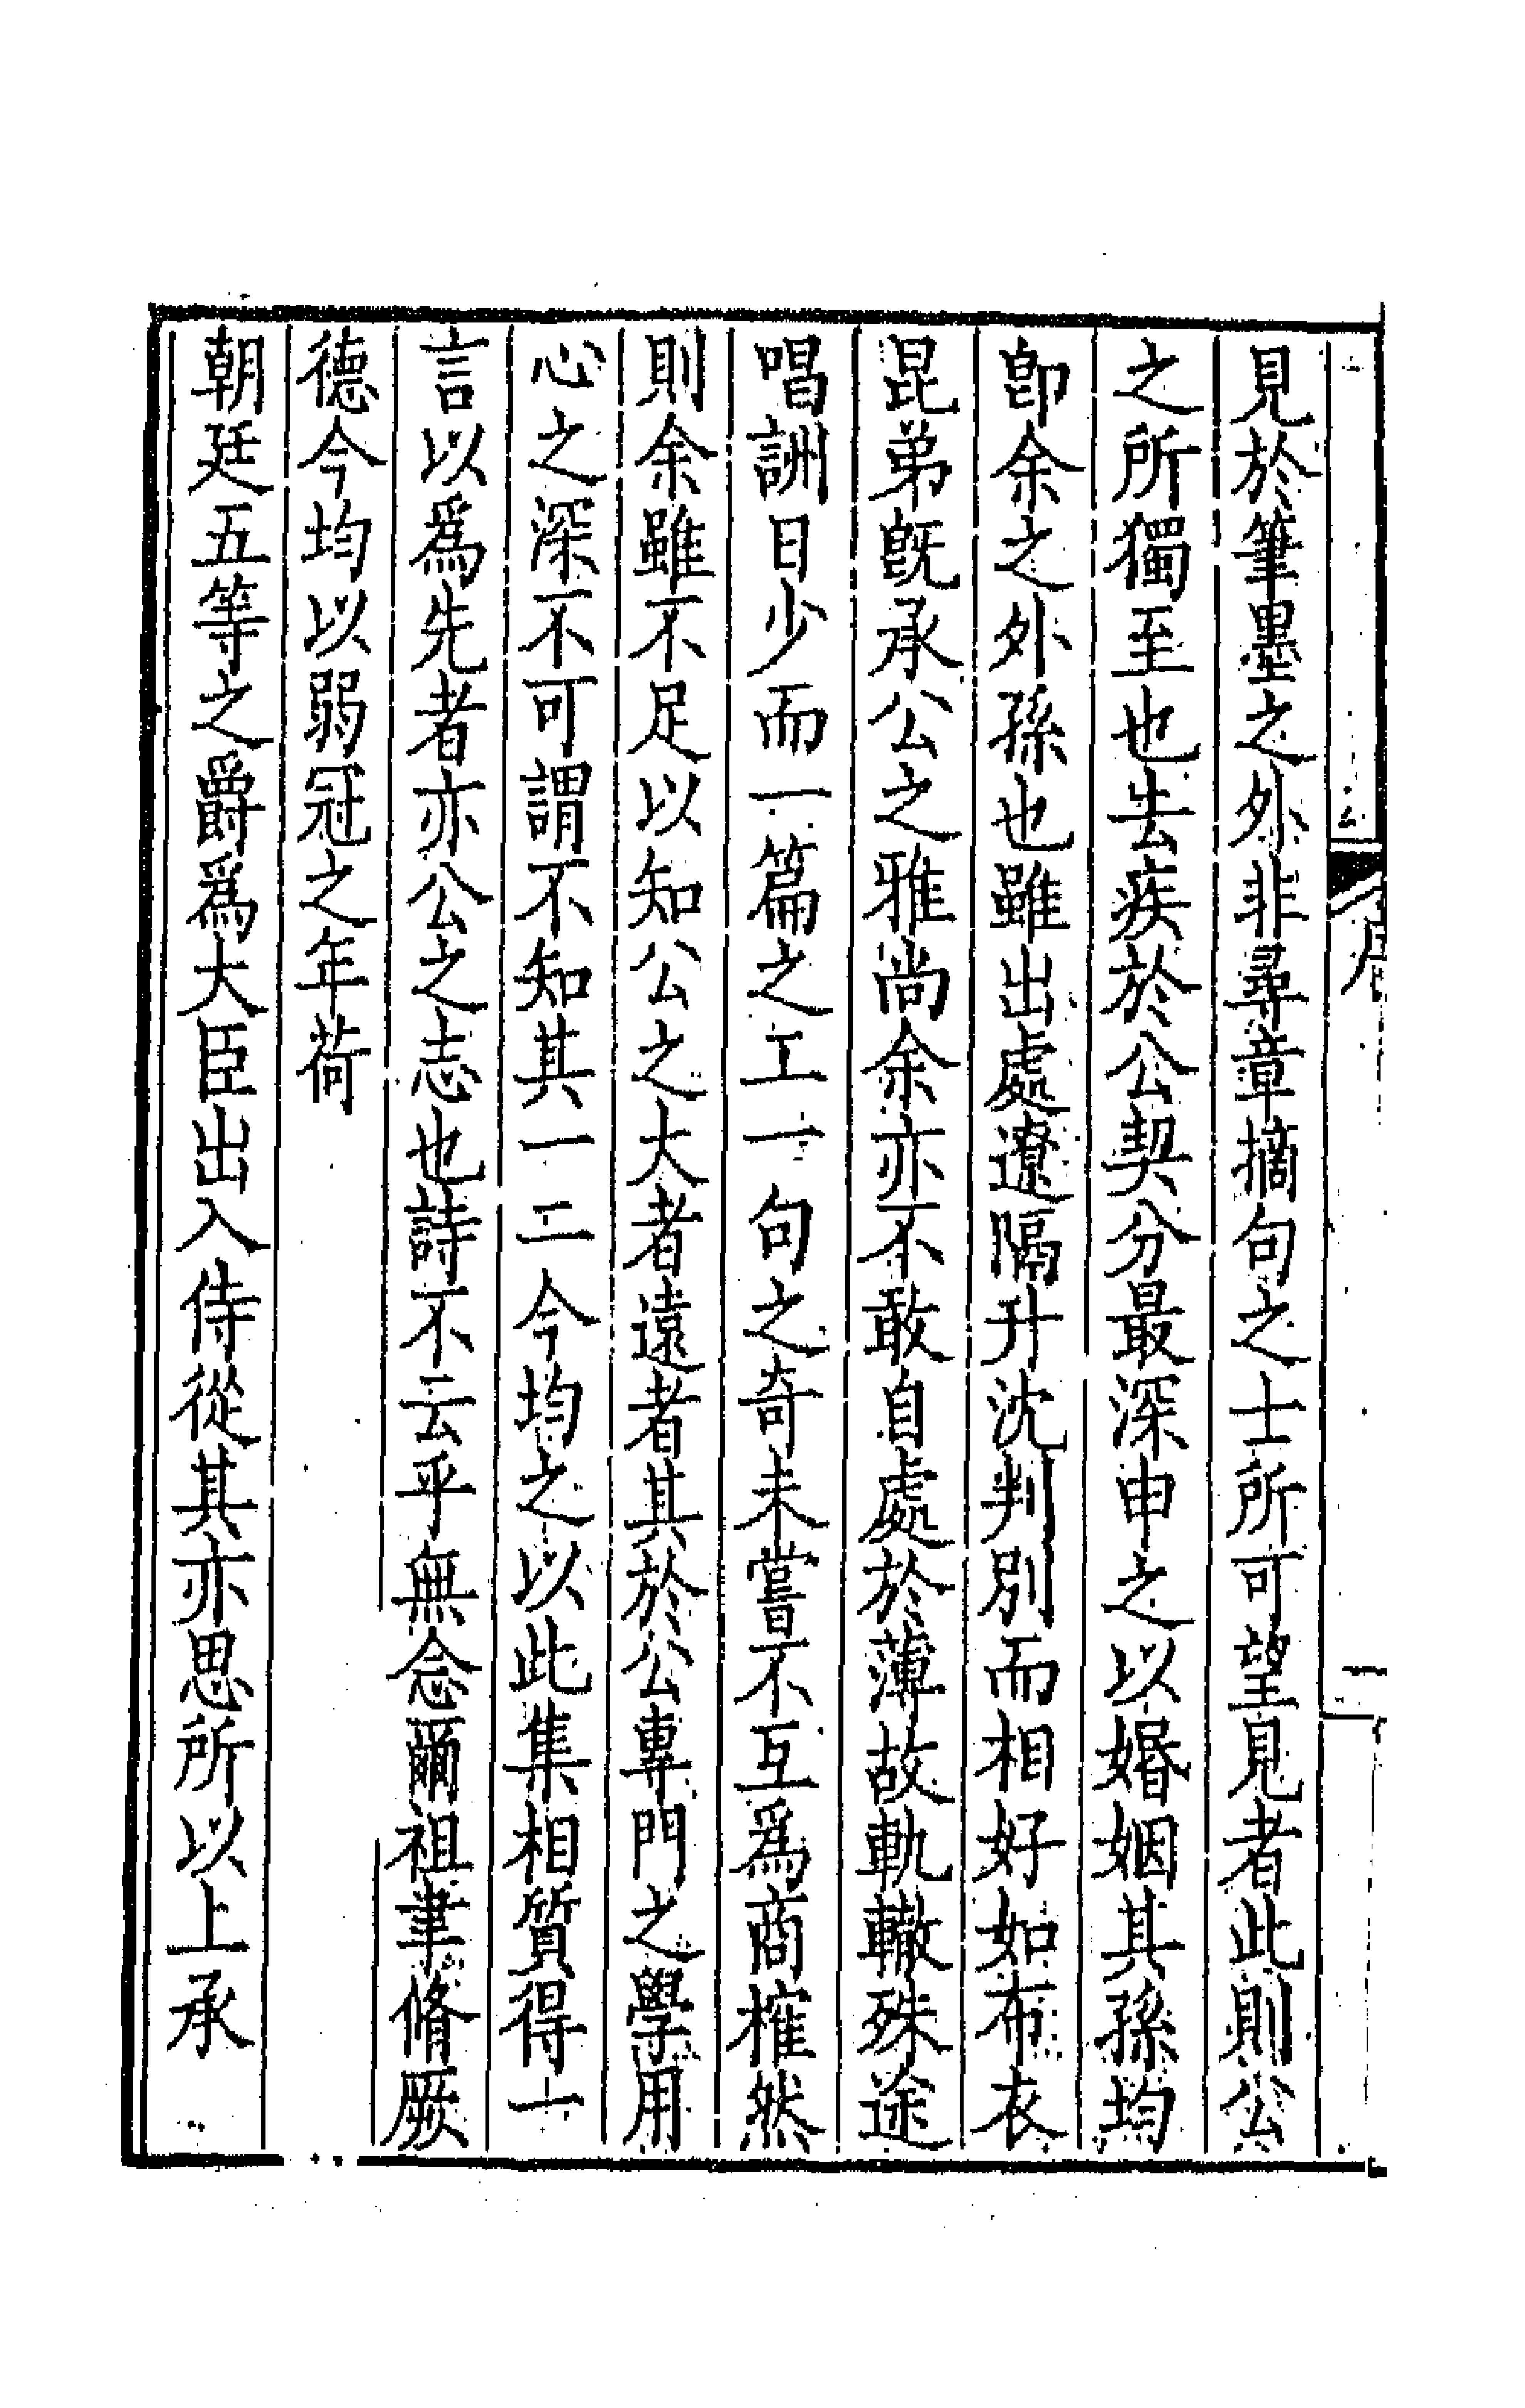 序
一
見於筆墨之外非尋章摘句之士所可望見者此則公
之所獨至也去疾於公契分最深申之以婚姻其孫均
卽余之外孫也雖出處遼隔升沈判別而相好如布衣
昆弟旣承公之雅尚余亦不敢自處於薄故軌轍殊途
唱詶日少而一篇之工一句之奇未嘗不互爲商搉然
則余雖不足以知公之大者遠者其於公專門之學用
心之深不可謂不知其一二今均之以此集相質得一
言以爲先者亦公之志也詩不云乎無念爾祖聿脩厥
德今均以弱冠之年荷
朝廷五等之爵爲大臣出入侍從其亦思所以上承